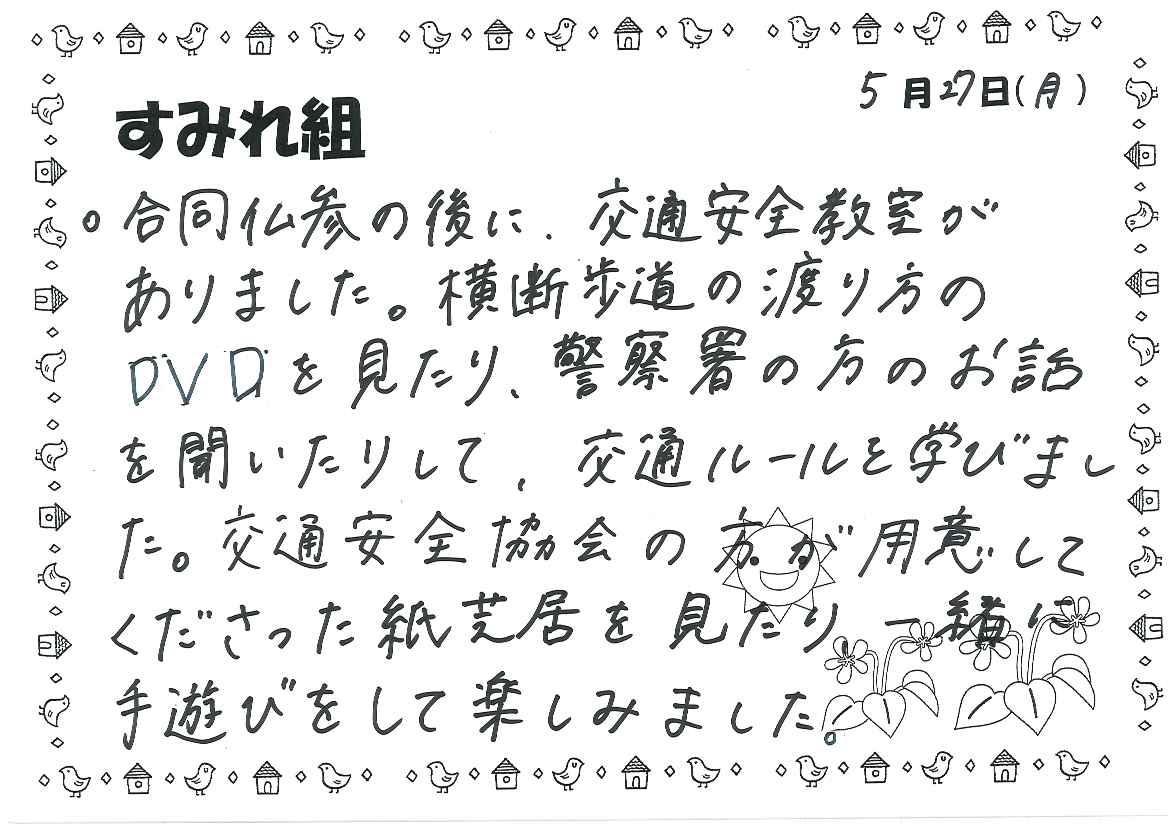 5月27日(月)
すみれ組
○合同仏参の後に、交通安全教室が
ありました。横断歩道の渡り方の
DVDを見たり、警察署の方のお話
を聞いたりして、交通ルールを学びまし
た。交通安全協会の方が用意して
くださった紙芝居を見たり、一緒に
手遊びをして楽しみました。